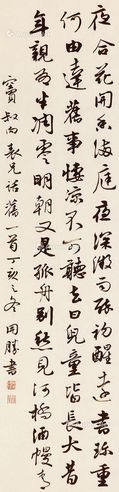 夜合花開香滿庭夜深微雨醉初醒遠書珍重
何由達舊事悽涼不可聽去日兒童皆長大昔
年親友半凋零明朝又是孤舟別愁見河橋酒幔青
竇叔向表兄話舊一首丁亥之冬書